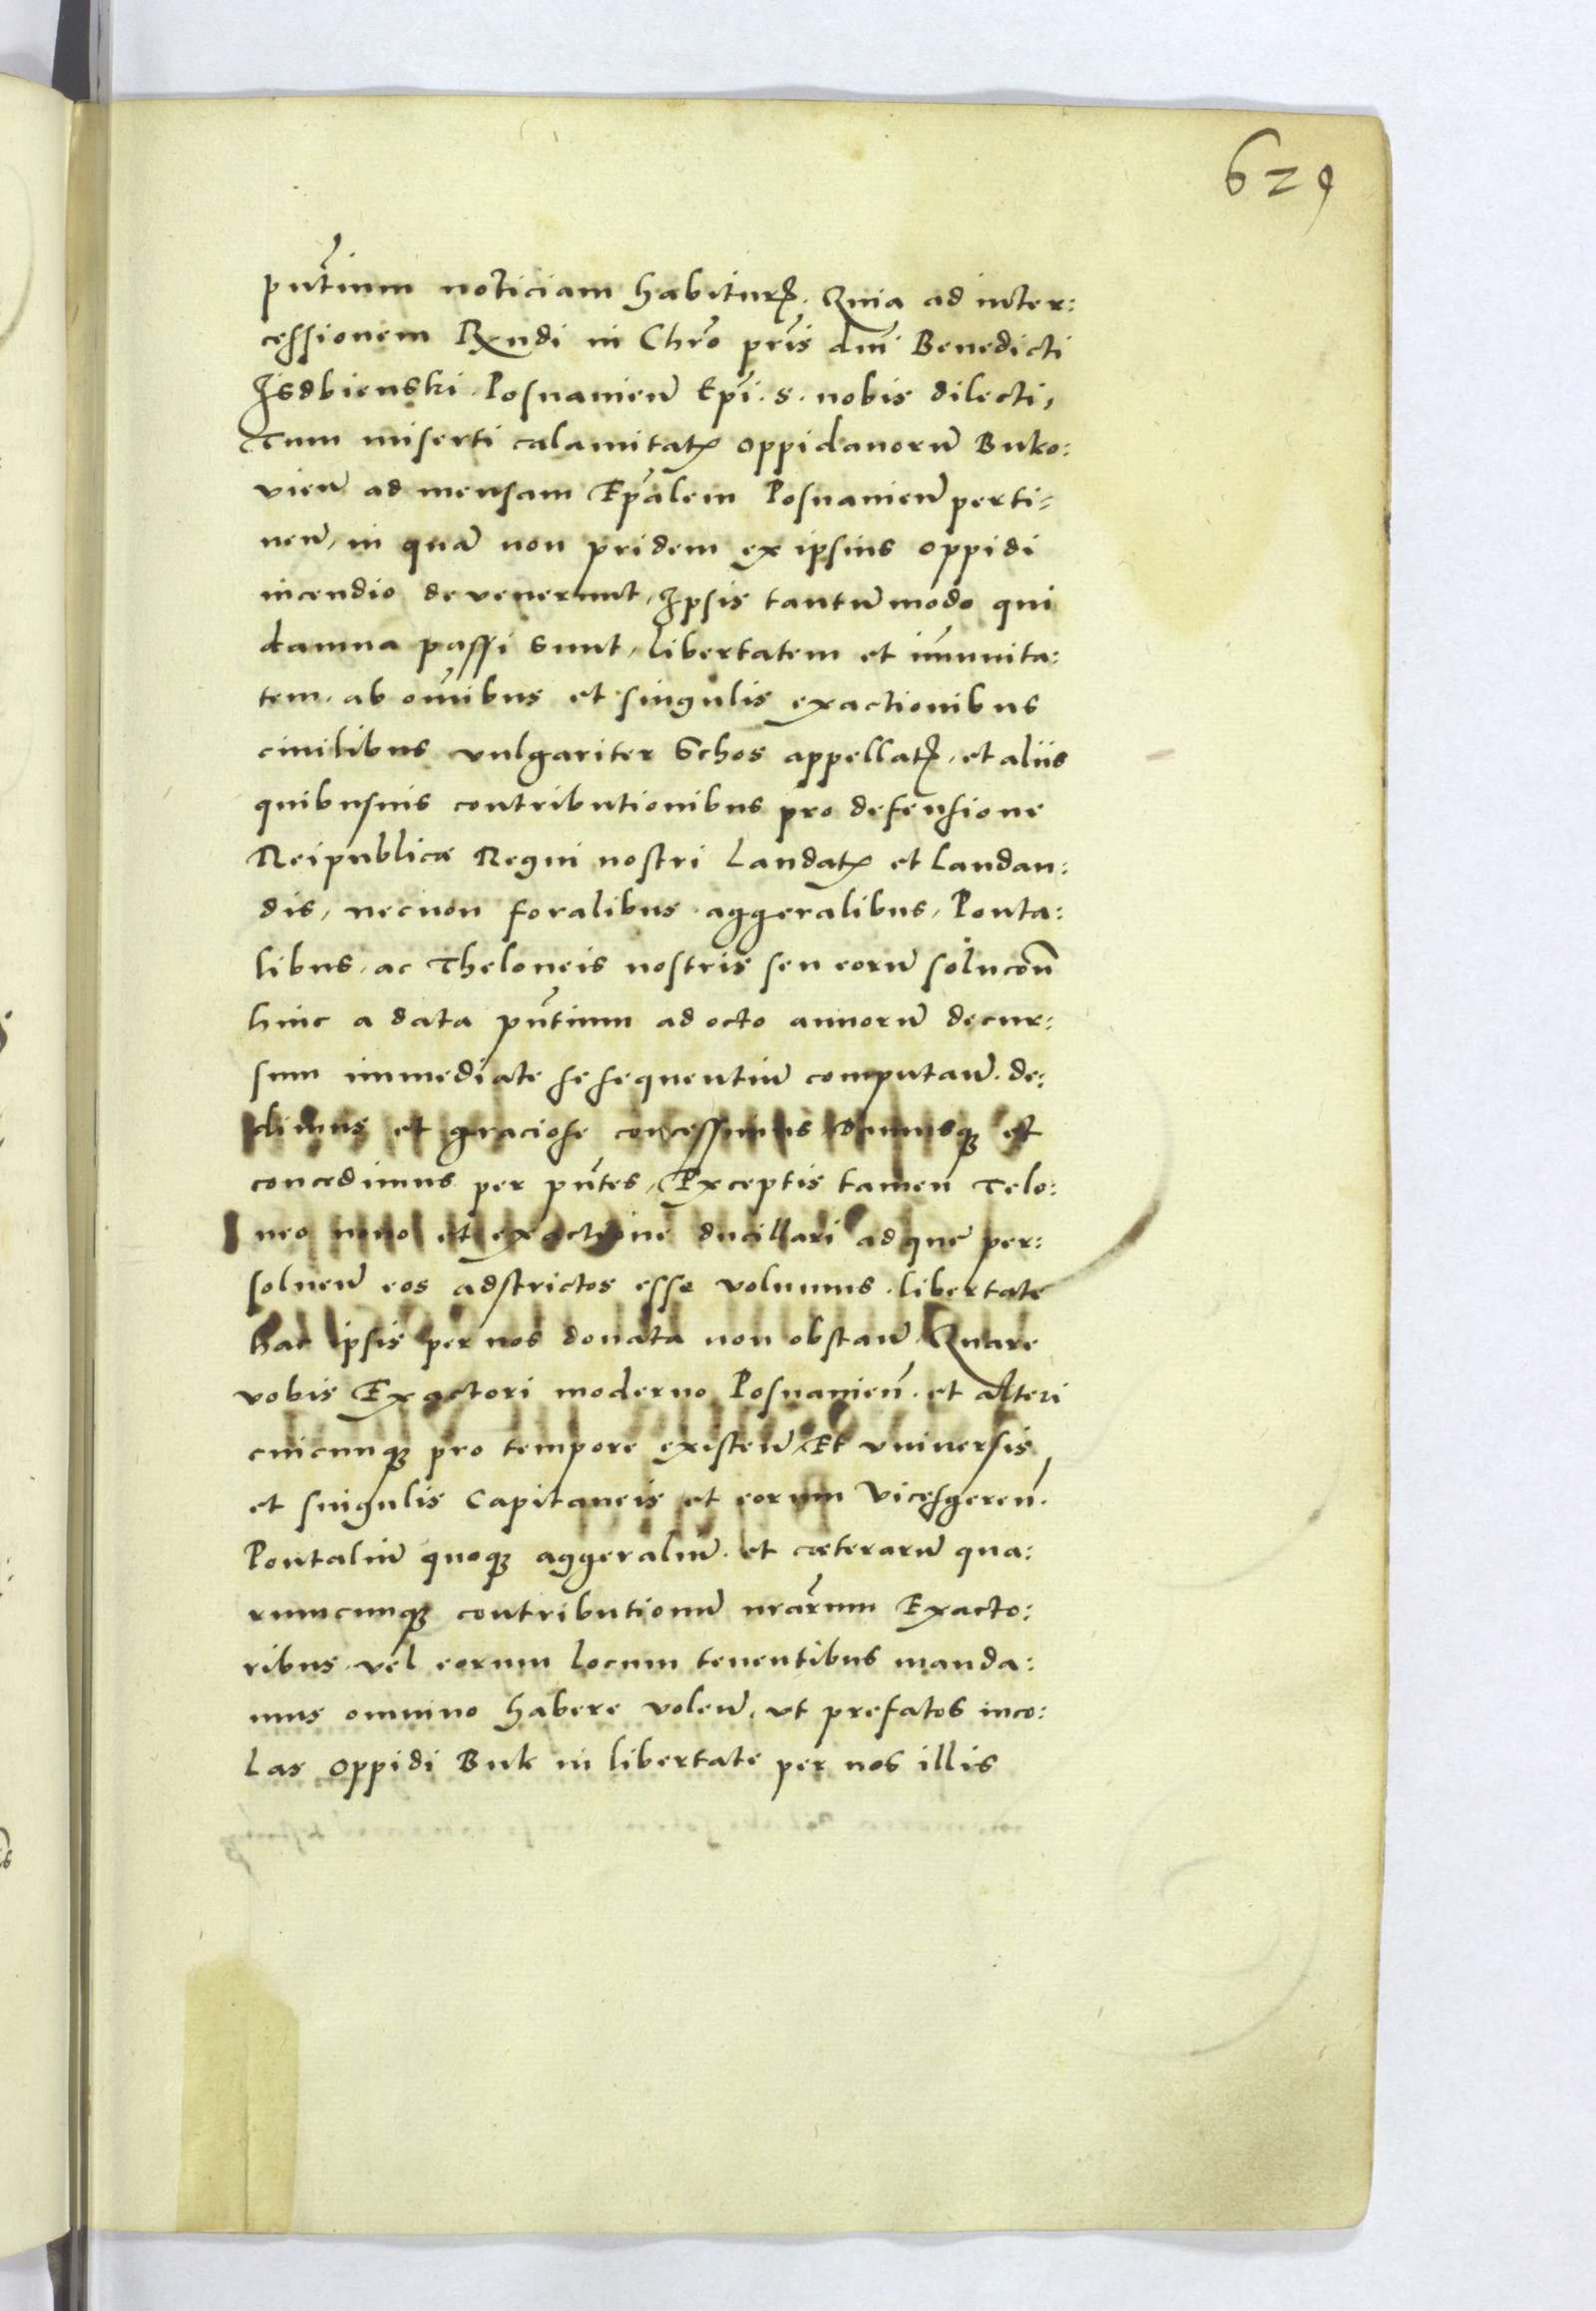 629
pūtium noticiam habiturꝭ. Quia ad inter:
cessionem Rxndi in Chro pris dni Benedicti
Jsdbienski Posnanien̄ Epi. s. nobis dilecti,
Tum miserti calamitatꝭ oppidanorū Buko:
vien̄ ad mensam Epalem Posnanien̄ perti:
nen̄, in quā non pridem ex ipsius oppidi
incendio devenerunt, Ipsis tantūmodo qui
damna passi sunt, libertatem et im̄unita:
tem. ab om̄ibus et singulis exactionibus
ciuilibus vulgariter Schos appellatꝭ, et aliis
quibusuis contributionibus pro defensione
Reipublicæ Regni nostri Laudatꝭ et laudan:
dis, necnon foralibus aggeralibus, Ponta:
libus, ac Theloneis nostris seu eorū solucoñ
hinc a data pñtium ad octo annorū decur:
sum immediate se sequentiū computan̄. de:
dimus et graciose concessimus damusqꝫ et
concedimus per pñtes, Exceptis tamen Telo:
neo nouo et exactione ducillari ad que per:
soluen̄ eos adstrictos esse volumus. libertate
hac ipsis per nos donata non obstan̄. Quare
vobis Exactori moderno Posnanien̄. et alteri
cuicunqꝫ pro tempore existen̄, Et vniuersis
et singulis Capitaneis et eorum Vicesgeren̄.
Pontaliū quoqꝫ aggeraliū. et cæterarū qua:
rumcunqꝫ contributionū nr̄arum Exacto:
ribus. vel eorum locum tenentibus manda:
mus omnino habere volen̄, vt prefatos inco:
las oppidi Buk in libertate per nos illis